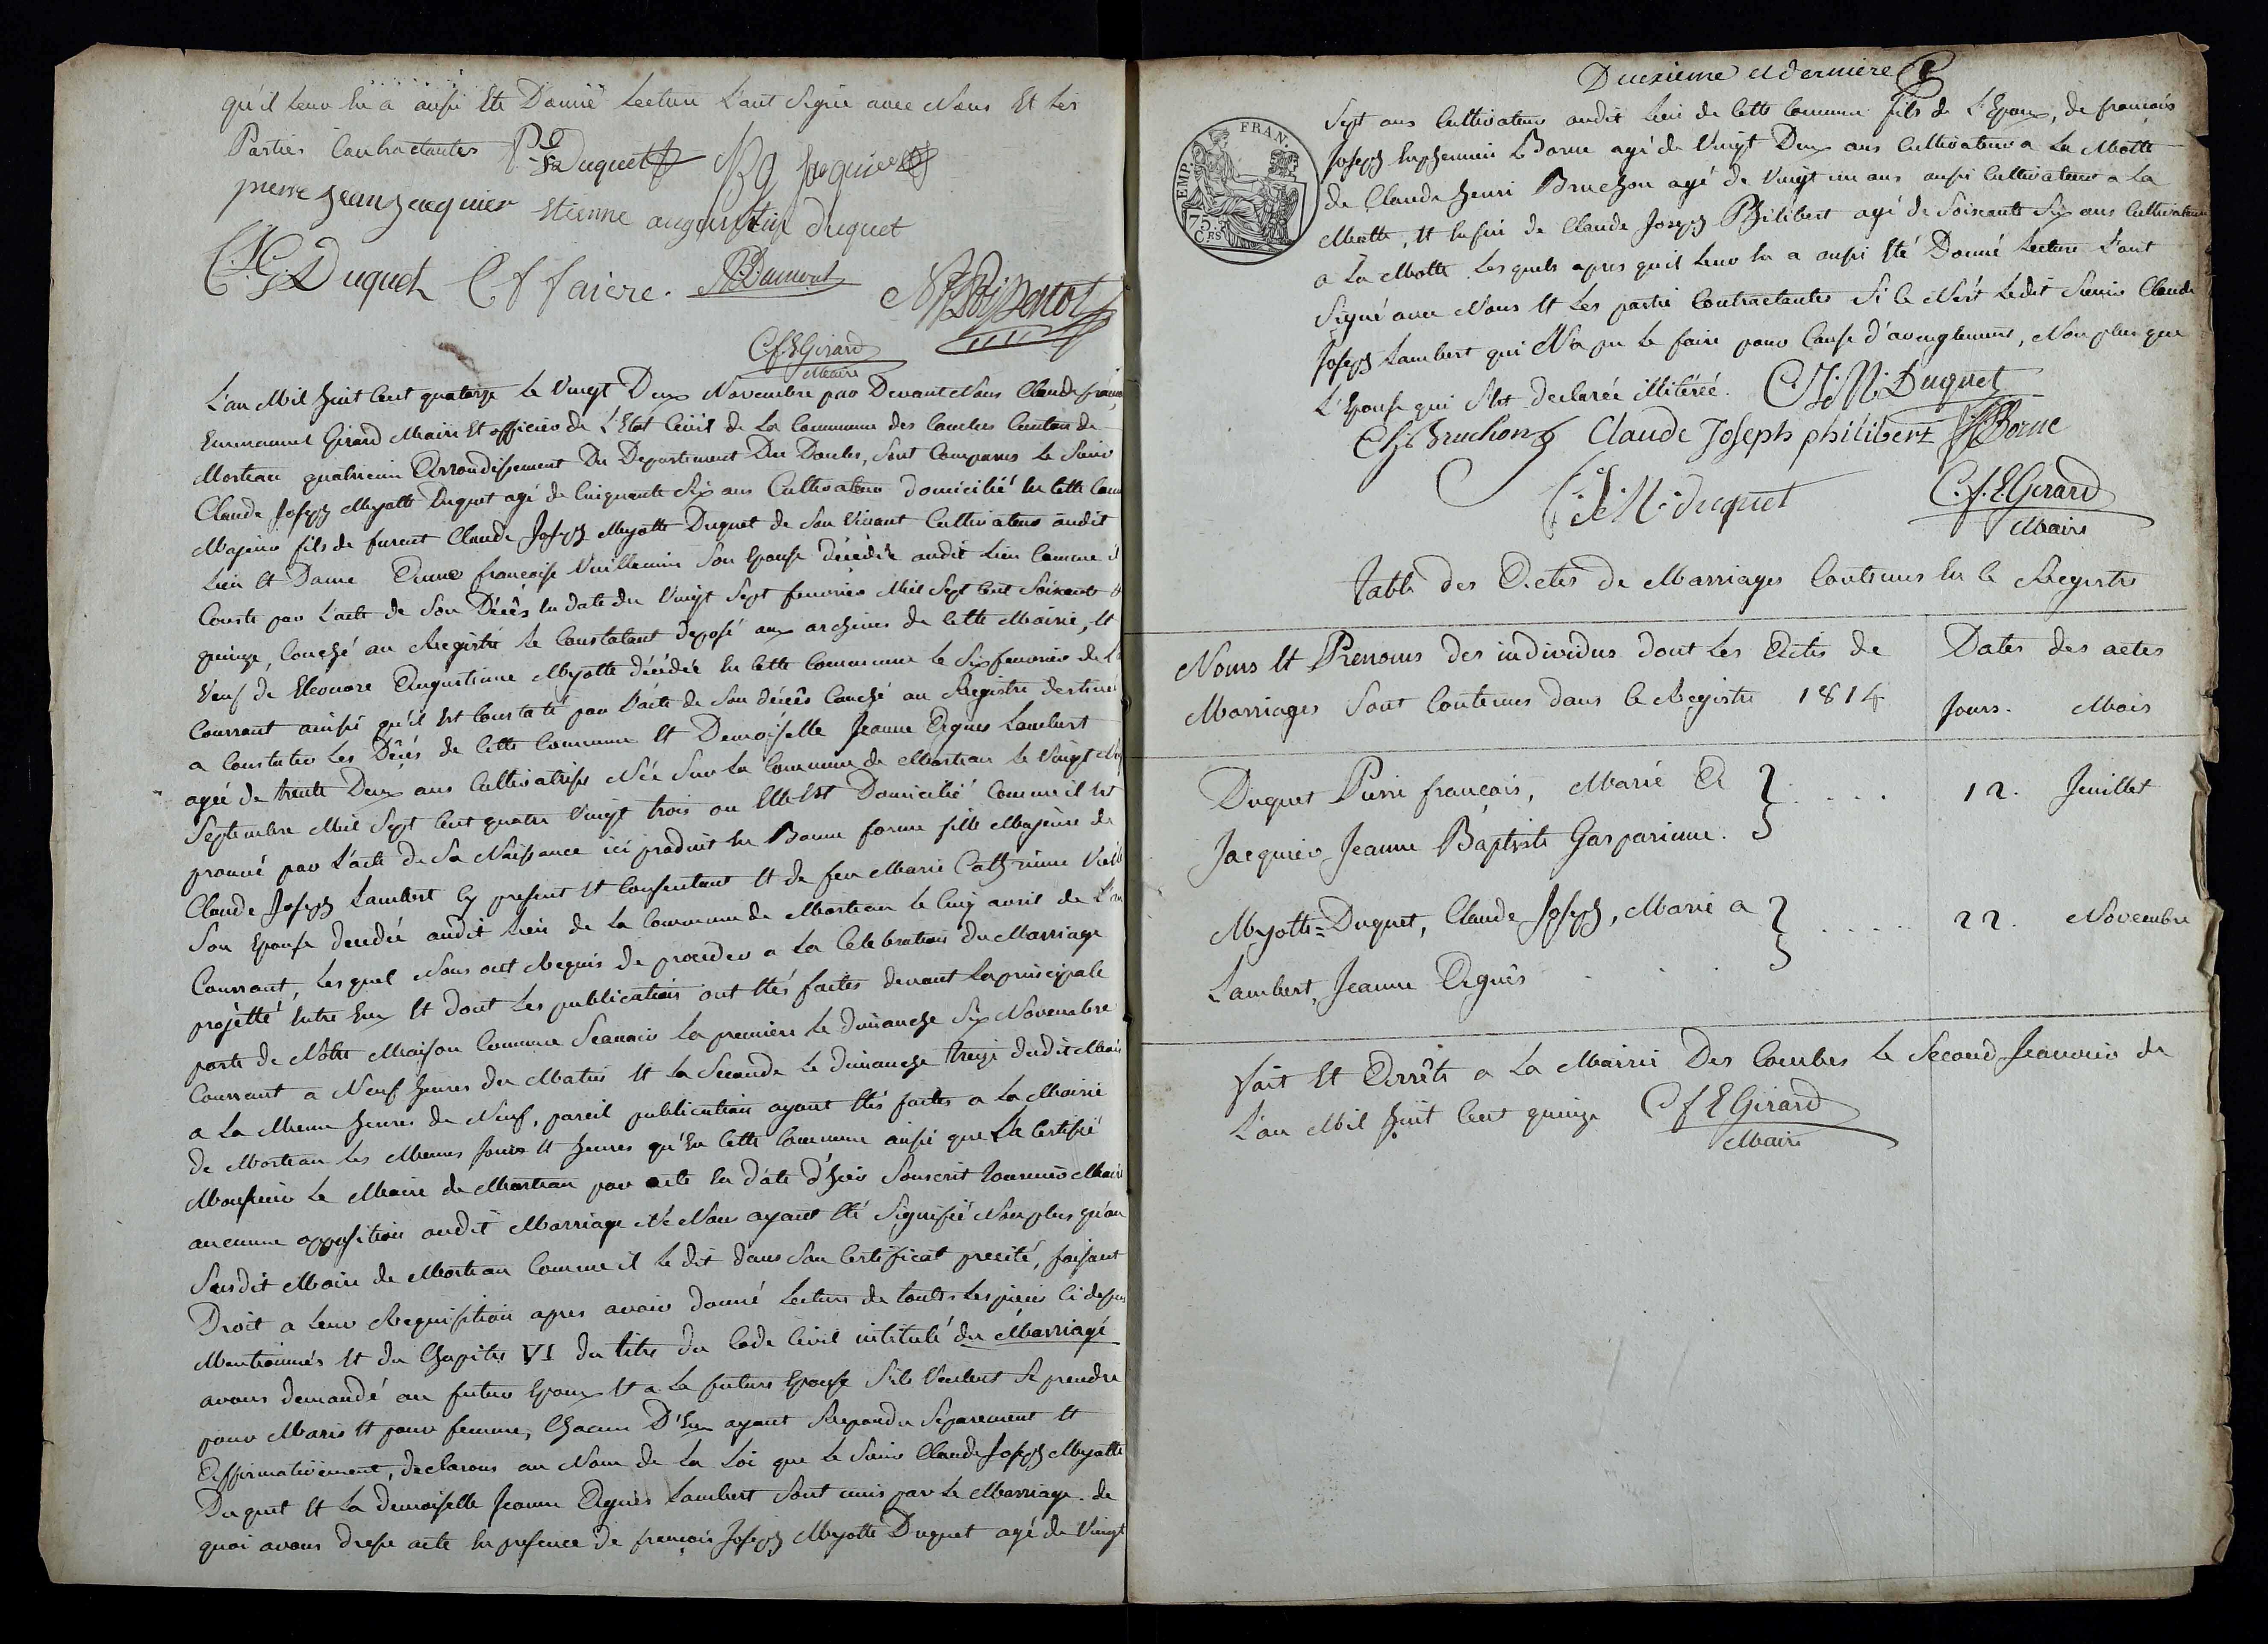 qu'il leur En a aussi Eté Donné Lecture L'ont Signé avec Nous Et Les
Parties Contractantes P F Duquet J B G Jacquier
pierre jean jacquier Etienne augustin duquet
Duquet C f faivre
C.f.E Girard
Maire
L'an Mil huit Cent quatorze le Vingt Deux Novembre par Devant Nous Claude françois
Emmanuel Girard Maire Et officier de L'Etat Civil de La Commune des Combes Canton de
Morteau quatrieme Arrondissement Du Departement Du Doubs, Sont Comparus Le Sieur
Claude Joseph Myotte Duquet agé de Cinquante Six ans Cultivateur domicilié En Cette Com
Majeur fils de furent Claude Joseph Myotte Duquet de Son Vivant Cultivateur audit
Lieu Et Dame Anne françoise Vuillemin Son Epouse décédée audit Lieu Comme il
Conste par L'acte de Son Décès En date du Vingt Sept fevrier Mil Sept Cent Soixante &
quinze, Couché au Registre Le Constatant deposé aux archives de Cette Mairie, Et
Veuf de Eleonore Augustinne Myotte décédée En Cette Commune Le Six fevrier de L'an
Courrant ainsi qu'il Est Constaté par L'acte de Son décès Couché au Registre destiné
a Constater Les Décés de Cette Commune Et Demoiselle Jeanne Agnes Lambert
agée de trente Deux ans Cultivatrise Née Sur La Commune de Morteau Le Vingt
Septembre Mil Sept Cent quatre Vingt trois ou Elle Est Domicilié Comme il Est
prouvé par L'acte de Sa Naissance ici produit En Bonne forme fille Majeure de
Claude Joseph Lambert Cy present Et Consentant Et de feu Marie Cathrinne
Son Epouse decedée audit Lieu de La Commune de Morteau Le Cinq avril de L'an
Courrant, Lesquel Nous ont Requis de proceder a La Celebration du Marriage
projetté Entre Eux Et dont Les publications ont Etés faites devant La principale
porte de Nôtre Maison Commune Scavoir La premiere Le dimanche Six Novembre
Courrant a Neuf heures du Matin Et La Seconde Le dimanche treize dudit Mois
a La Meme heures de Neuf, pareil publication ayant Etés faites a La Mairie
de Morteau Les Memes Jours Et heures qu'En Cette Commune ainsi que L'a Certifié
Monsieur Le Maire de Morteau par acte En date d'hier Souscrit Maire
aucunne opposition audit Marriage Ne Nous ayant Eté Signifié Non plus qu'au
Susdit Maire de Morteau Comme il Le dit dans Son Certificat precité, faisant
Droit a Leur Requisition apres avoir donné Lecture de toutes Les pieces Ci dessus
Mentionnés Et du Chapitre VI du titre du Code Civil intitulé du Marriage
avons demandé au futur Epoux Et a La future Epouse S'ils Veulent Se prendre
pour Maris Et pour femme, Chacun D'Eux ayant Repondu Séparement Et
Affirmativement, declarons au Nom de La Loi que Le Sieur Claude Joseph Myotte
Duquet Et La demoiselle Jeanne Agnes Lambert Sont unis par Le Marriage. de
quoi avons dressé acte En presence de françois Joseph Myotte Duquet agé de Vingt
Deuxieme et derniere
FRAN.
TEMP.
75
CES
Sept ans Cultivateur audit Lieu de Cette Commune fils de L'Epoux, de françois
Joseph Euphemien Borne agé de Vingt Deux ans Cultivateur a La Motte
de Claude henri Bruchon agé de Vingt un ans aussi Cultivateur a La
Motte, Et Enfin de Claude Joseph Philibert agé de Soixante Six ans Cultivateur
a La Motte Lesquels apres qu'il Leur En a aussi Eté Donné Lecture L'ont
Signé avec Nous Et Les partie Contractantes Si Ce N'est Ledit Sieur Claude
Joseph Lambert qui N'a pu Le faire pour Cause d'aveuglement, Non plus que
L'Epouse qui S'Est declarée illiterée. C.J.M. Duquet
C h Bruchon Claude Joseph philibert Borne
C.J.M. duquet C.f.E.Girard
Maire
Table des Actes de Marriages Contenus En Ce Registre
Noms Et Prenoms des individus dont Les Actes de Dates des actes
Marriages Sont Contenus dans Ce Registre 1814 Jours. Mois
Duquet Pierre françois, Marié A 12. Juillet
Jacquier Jeanne Baptiste Gasparinne.
Myotte=Duquet, Claude Joseph, Marié a 22. Novembre
Lambert, Jeanne Agnês
Fait Et Arrêté a La Mairie Des Combes Le Second Janvier de
L'an Mil huit Cent quinze C f E Girard
Maire